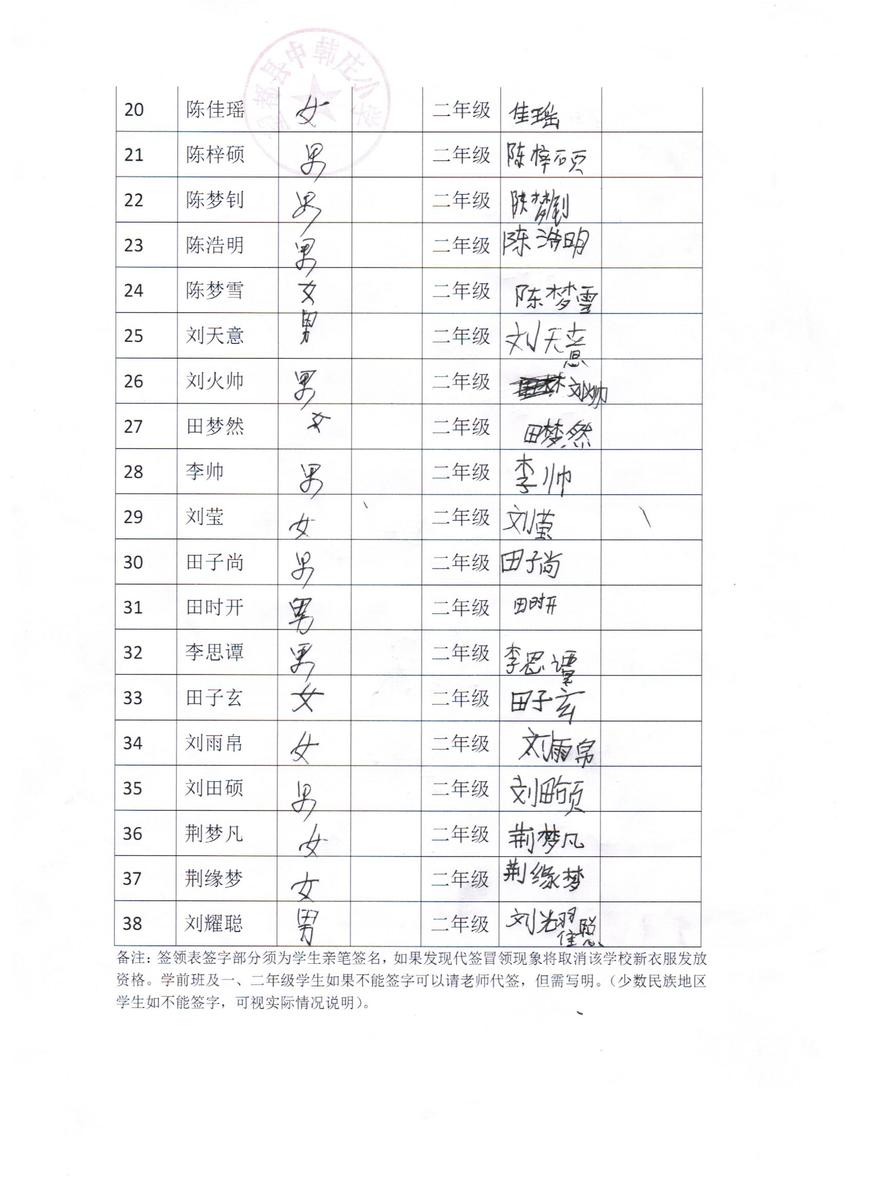 县中韩庄小学
20 陈佳瑶 女 二年级 佳瑶
21 陈梓硕 男 二年级 陈梓硕
22 陈梦钊 男 二年级 陈梦钊
23 陈浩明 男 二年级 陈浩明
24 陈梦雪 女 二年级 陈梦雪
25 刘天意 男 二年级 刘天意
26 刘火帅 男 二年级
27 田梦然 女 二年级 田梦然
28 李帅 男 二年级 李帅
29 刘莹 女 二年级 刘莹
30 田子尚 男 二年级 田子尚
31 田时开 男 二年级 田时开
32 李思谭 男 二年级 李思谭
33 田子玄 女 二年级 田子玄
34 刘雨帛 女 二年级 刘雨帛
35 刘田硕 男 二年级 刘田硕
36 荆梦凡 女 二年级 荆梦凡
37 荆缘梦 女 二年级 荆缘梦
38 刘耀聪 男 二年级 刘耀聪
备注：签领表签字部分须为学生亲笔签名，如果发现代签冒领现象将取消该学校新衣服发放
资格。学前班及一、二年级学生如果不能签字可以请老师代签，但需写明。（少数民族地区
学生如不能签字，可视实际情况说明）。